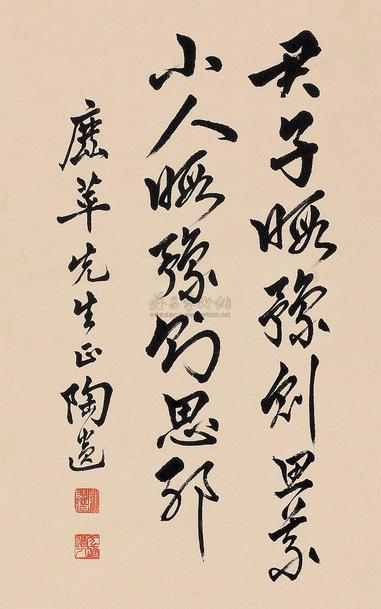 君子暇豫則思義
小人暇豫則思邪
鹿苹先生正 陶遺